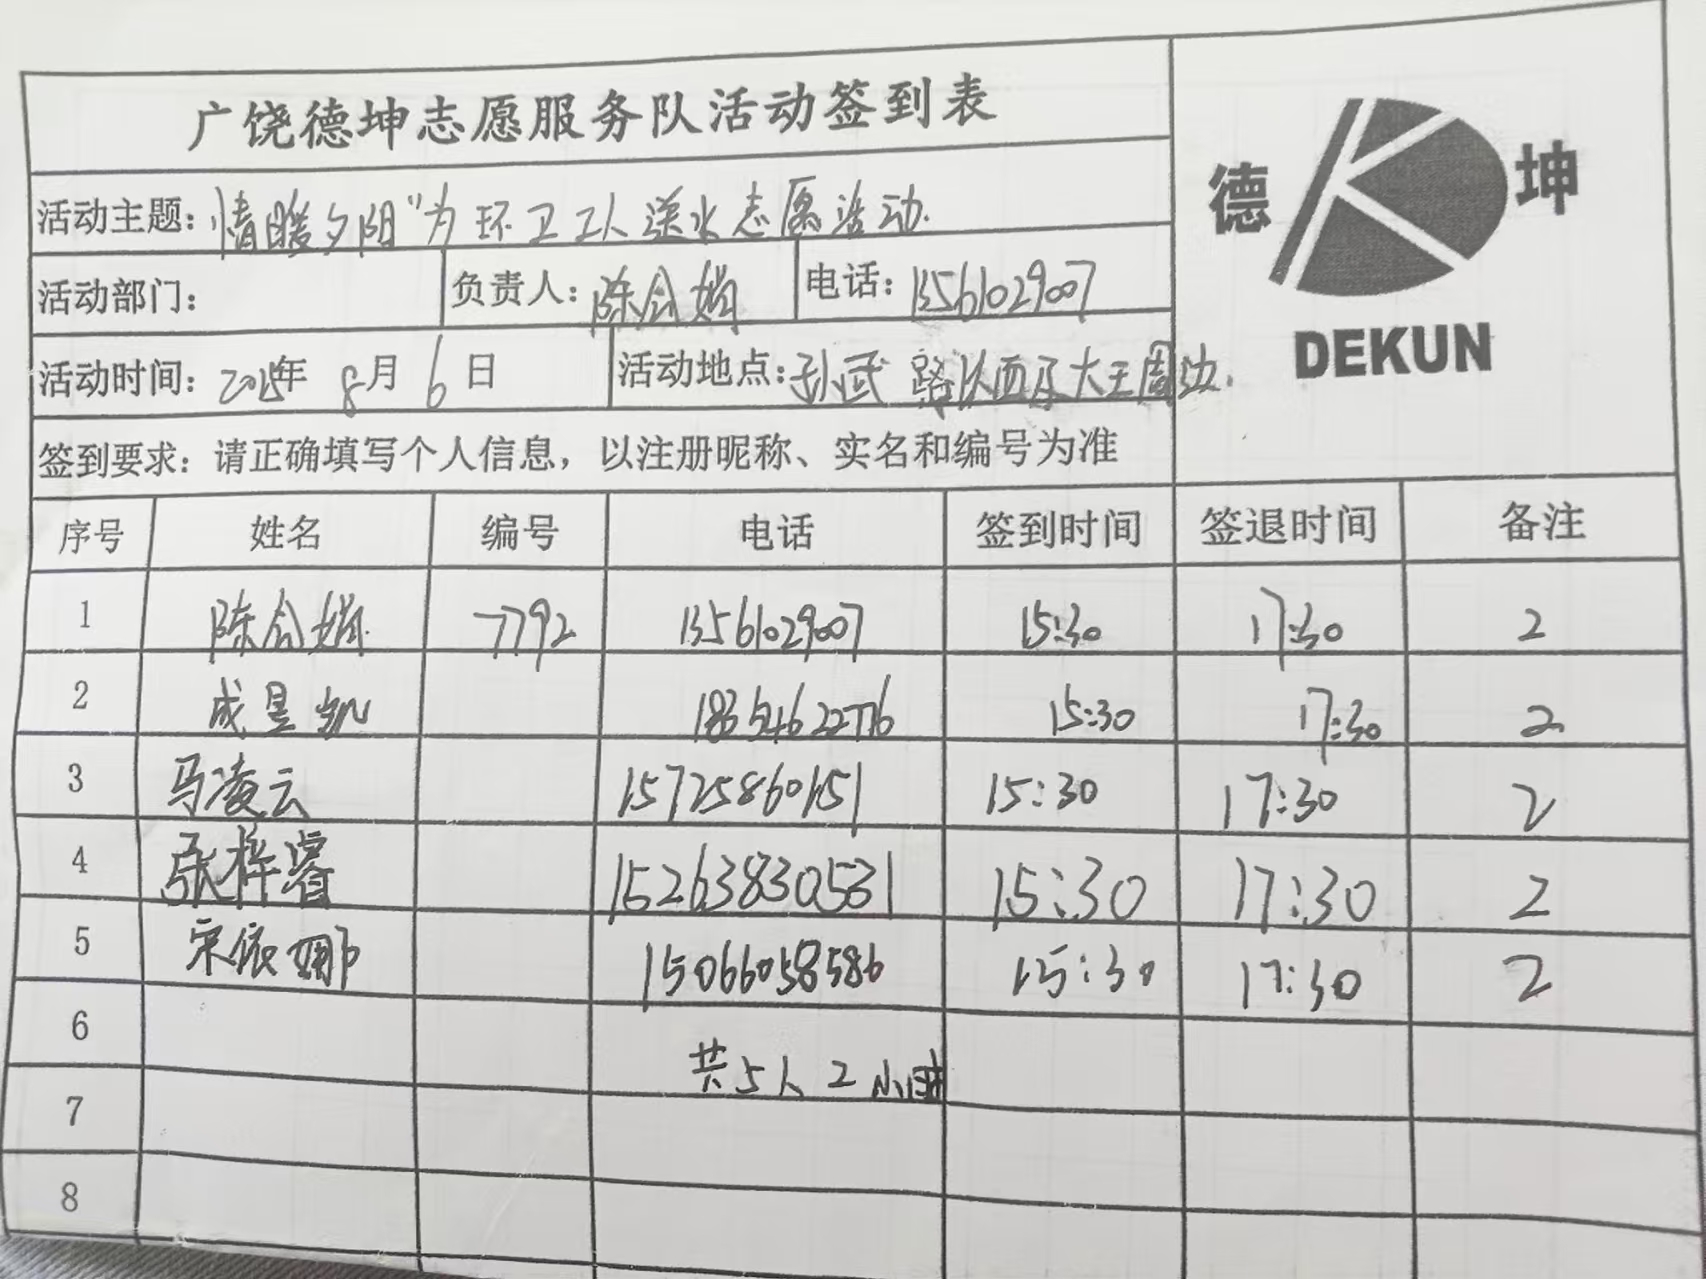 广饶德坤志愿服务队活动签到表
德 坤
DEKUN
活动主题：情暖夕阳"为环卫工人送水志愿活动.
活动部门： 负责人：陈会娟 电话：13561029007
活动时间：2025年 8月 6日 活动地点：孙武路以西及大王周边.
签到要求：请正确填写个人信息，以注册昵称、实名和编号为准
序号 姓名 编号 电话 签到时间 签退时间 备注
1 陈会娟 7792 13561029007 15:30 17:30 2
2 成昱凯 18354622776 15:30 17:30 2
3 马凌云 15725860151 15:30 17:30 2
4 张梓睿 15263830531 15:30 17:30 2
5 宋依娜 15066058586 15:30 17:30 2
6 共5人 2小时
7
8